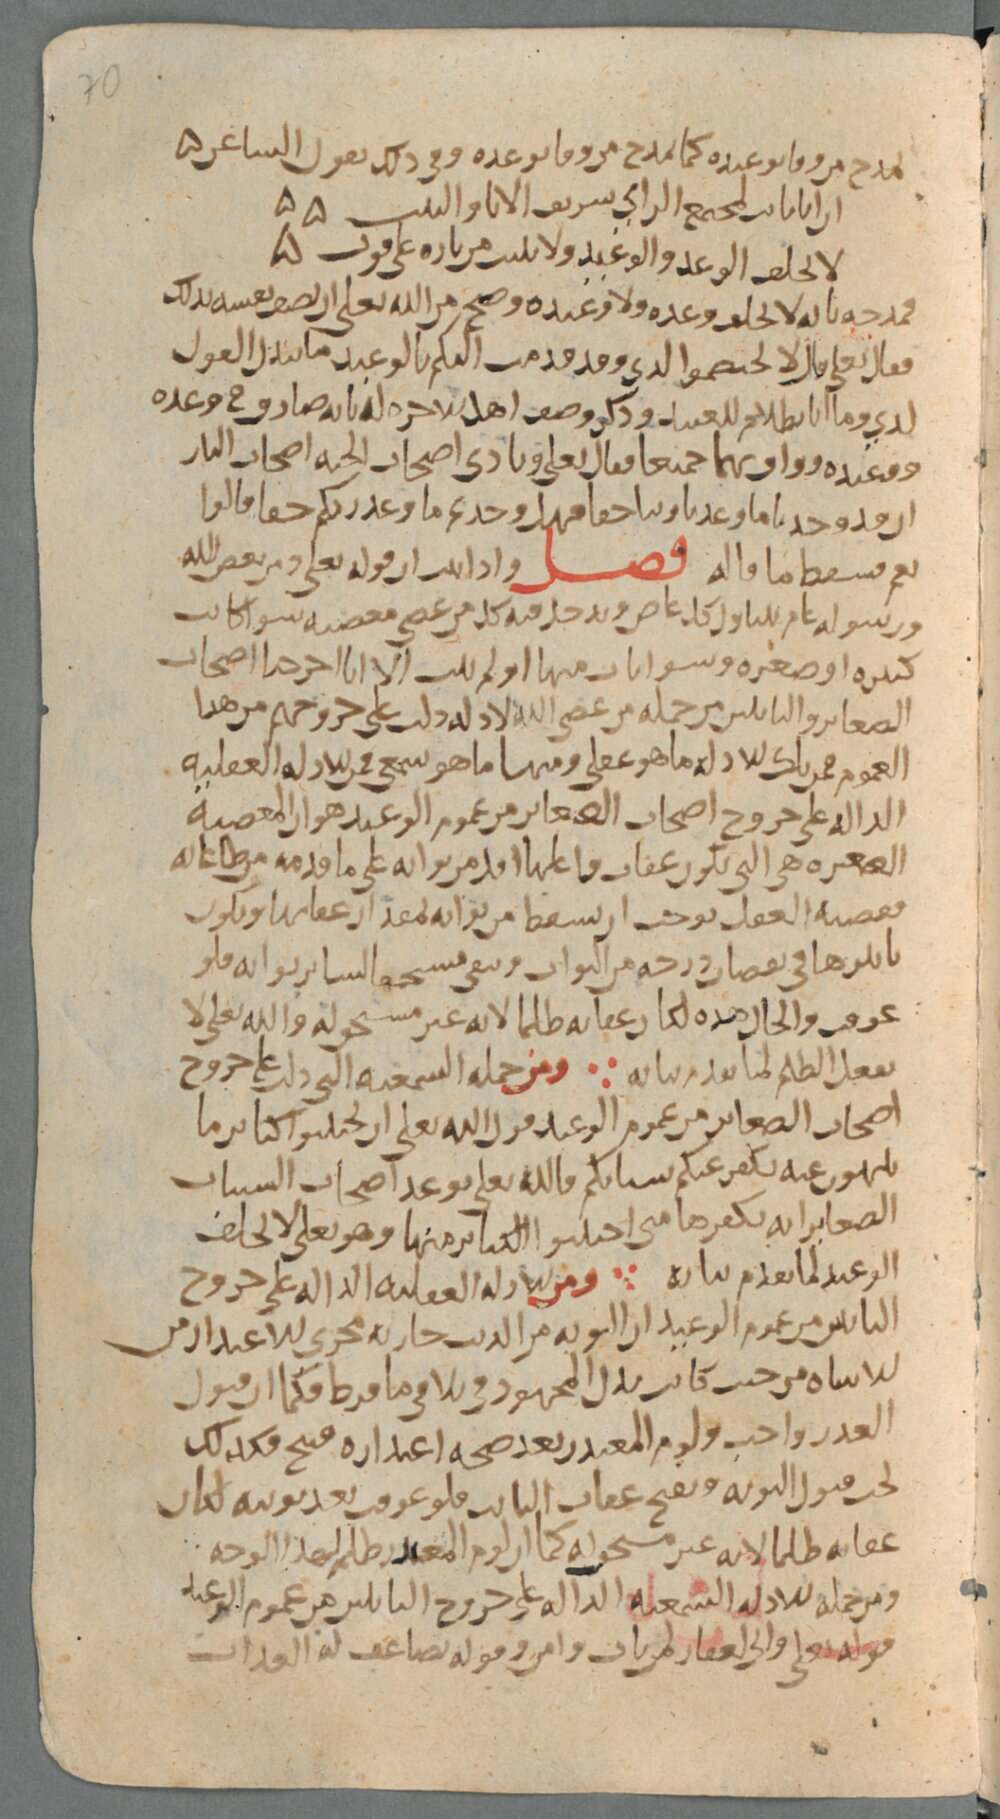 70
يمدح من وفا بوعيده كما يمدح من وفا بوعده وفي ذلك يقول الشاعر ۵
ان ابا ثابت لمجتمع الراي شريف الابا والبيت ۵ ۵
لا يخلف الوعد والوعيد ولا يبيت من ثاره على فوت ۵
فمدحه بانه لا يخلف وعده ولا وعيده وصح من الله تعلى ان يصف نفسه بذلك
فقال تعلى قال لا تختصموا لدي وقد قدمت اليكم بالوعيد ما يبدل القول
لدي وما انا بظلام للعبيد وذكر وصف اهل الاخرة له بانه صادق في وعده
ووعيده وواف بهما جميعا فقال تعلى ونادى اصحاب الجنه اصحاب النار
ان قد وجدنا ما وعدنا ربنا حقا فهل وجدتم ما وعد ربكم حقا قالوا
نعم فسقط ما قاله فصل واذا ثبت ان قوله تعلى ومن يعص الله
ورسوله عام يتناول كل عاص ويدخل فيه كل من عصى معصيه سوا كانت
كبيره او صغيره وسوا تاب منها او لم يتب الا انا اخرجنا اصحاب
الصغاير والتايبين من جمله من عصى الله لادله دلت على خروجهم من هذا
العموم فمن تلك الادله ما هو عقلي ومنها ما هو سمعي فمن الادله العقليه
الداله على خروج اصحاب الصغاير من عموم الوعيد هو ان المعصية
الصغيره هي التي يكون عقاب فاعلها اقل من ثوابه على ما قدمه من طاعاته
فقضيه العقل توجب ان يسقط من ثوابه بمقدار عقابها ويكون
تاثيرها في نقصان درجه من الثواب ويبقى مستحقا لساير ثوابه فلو
عوقب والحال هذه لكان عقابه ظلما لانه غير مستحق له والله تعلى لا
يفعل الظلم لما تقدم بيانه ومن جمله السمعيه التي دلت على خروج
اصحاب الصغاير من عموم الوعيد قول الله تعلى ان تجتنبوا كباير ما
تنهون عنه نكفر عنكم سياتكم فالله تعلى يوعد اصحاب السيات
الصغاير انه يكفرها متى اجتنبوا الكباير منها وهو تعلى لا يخلف
الوعيد لما تقدم بيانه ومن الادله العقليه الداله على خروج
التايبين من عموم الوعيد ان التوبه من الذنب جاريه مجرى الاعتذار من
الاساه من حيث كانت بذل المجهود في تلافي ما فرط فكما ان قبول
العذر واجب ولوم المعتذر بعد صحه اعتذاره قبيح فكذلك
يجب قبول التوبه ويقبح عقاب التايب فلو عوقب بعد توبته لكان
عقابه ظلما لانه غير مستحق له كما ان لوم المعتذر ظلم لهذا الوجه
ومن جمله الادله السمعيه الداله على خروج التايبين من عموم الوعيد
قوله تعلى واني لغفار لمن تاب وامن وقوله يضاعف له العذاب